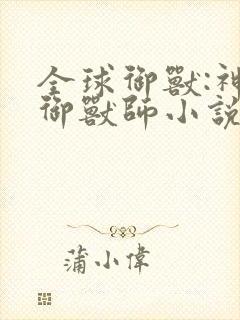 全球御獸:神
御獸師小說
蒲小偉